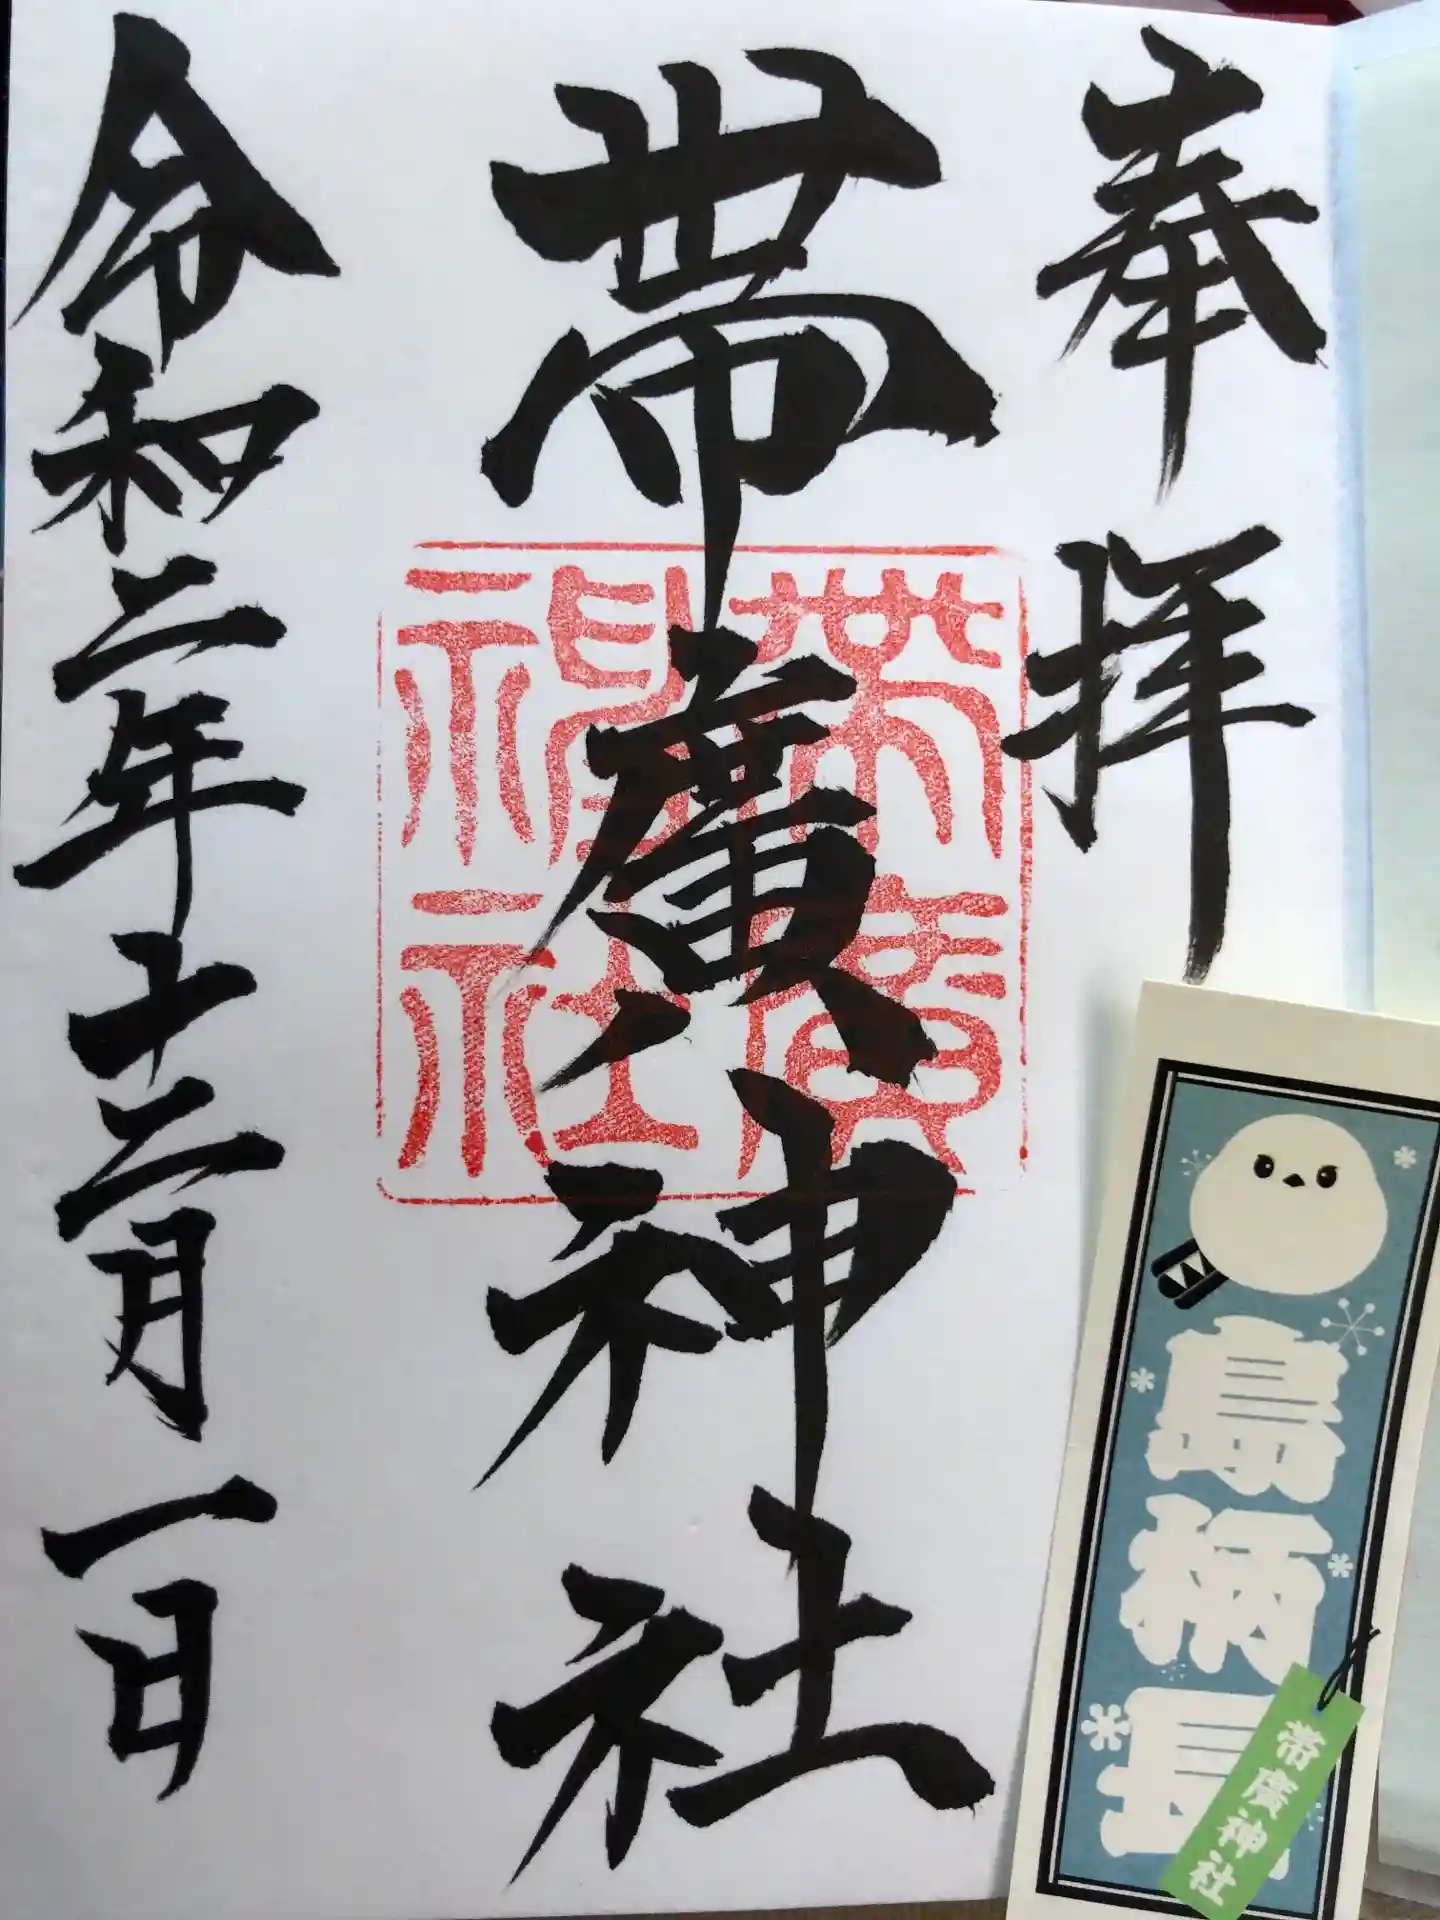 奉拝
帯廣神社
帯廣
神社
令和二年十二月一日
島柄長
帯廣神社